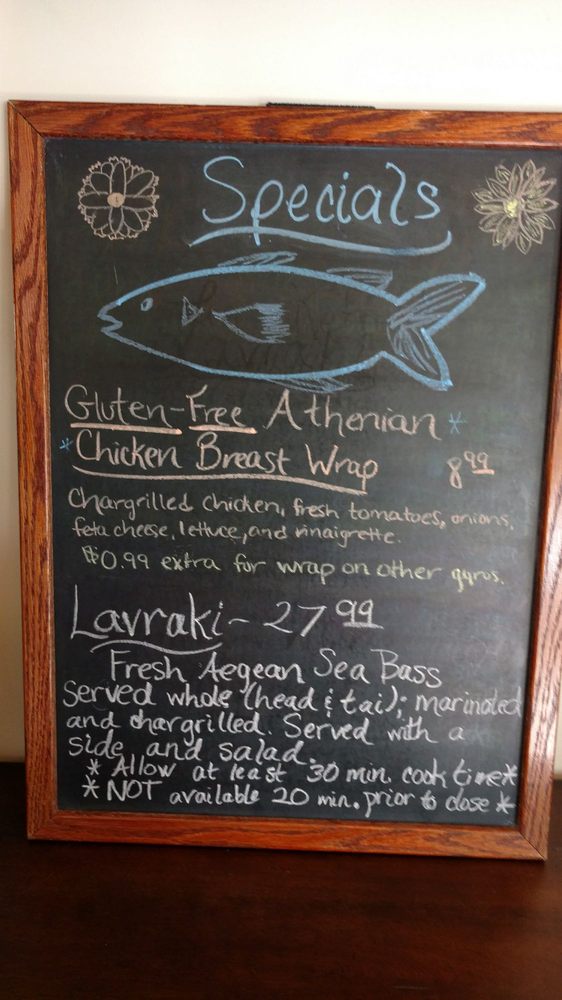 Specials
Gluten-Free Athenian *
* Chicken Breast Wrap 8.99
Chargrilled Chicken, fresh tomatoes, onions,
feta cheese, lettuce, and vinaigrette.
$0.99 extra for wrap on other gyros.
Lavraki - 27.99
Fresh Aegean Sea Bass
Served whole (head & tail); marinated
and chargrilled. Served with a
side and salad.
* Allow at least 30 min. cook time *
* NOT available 20 min. prior to close *